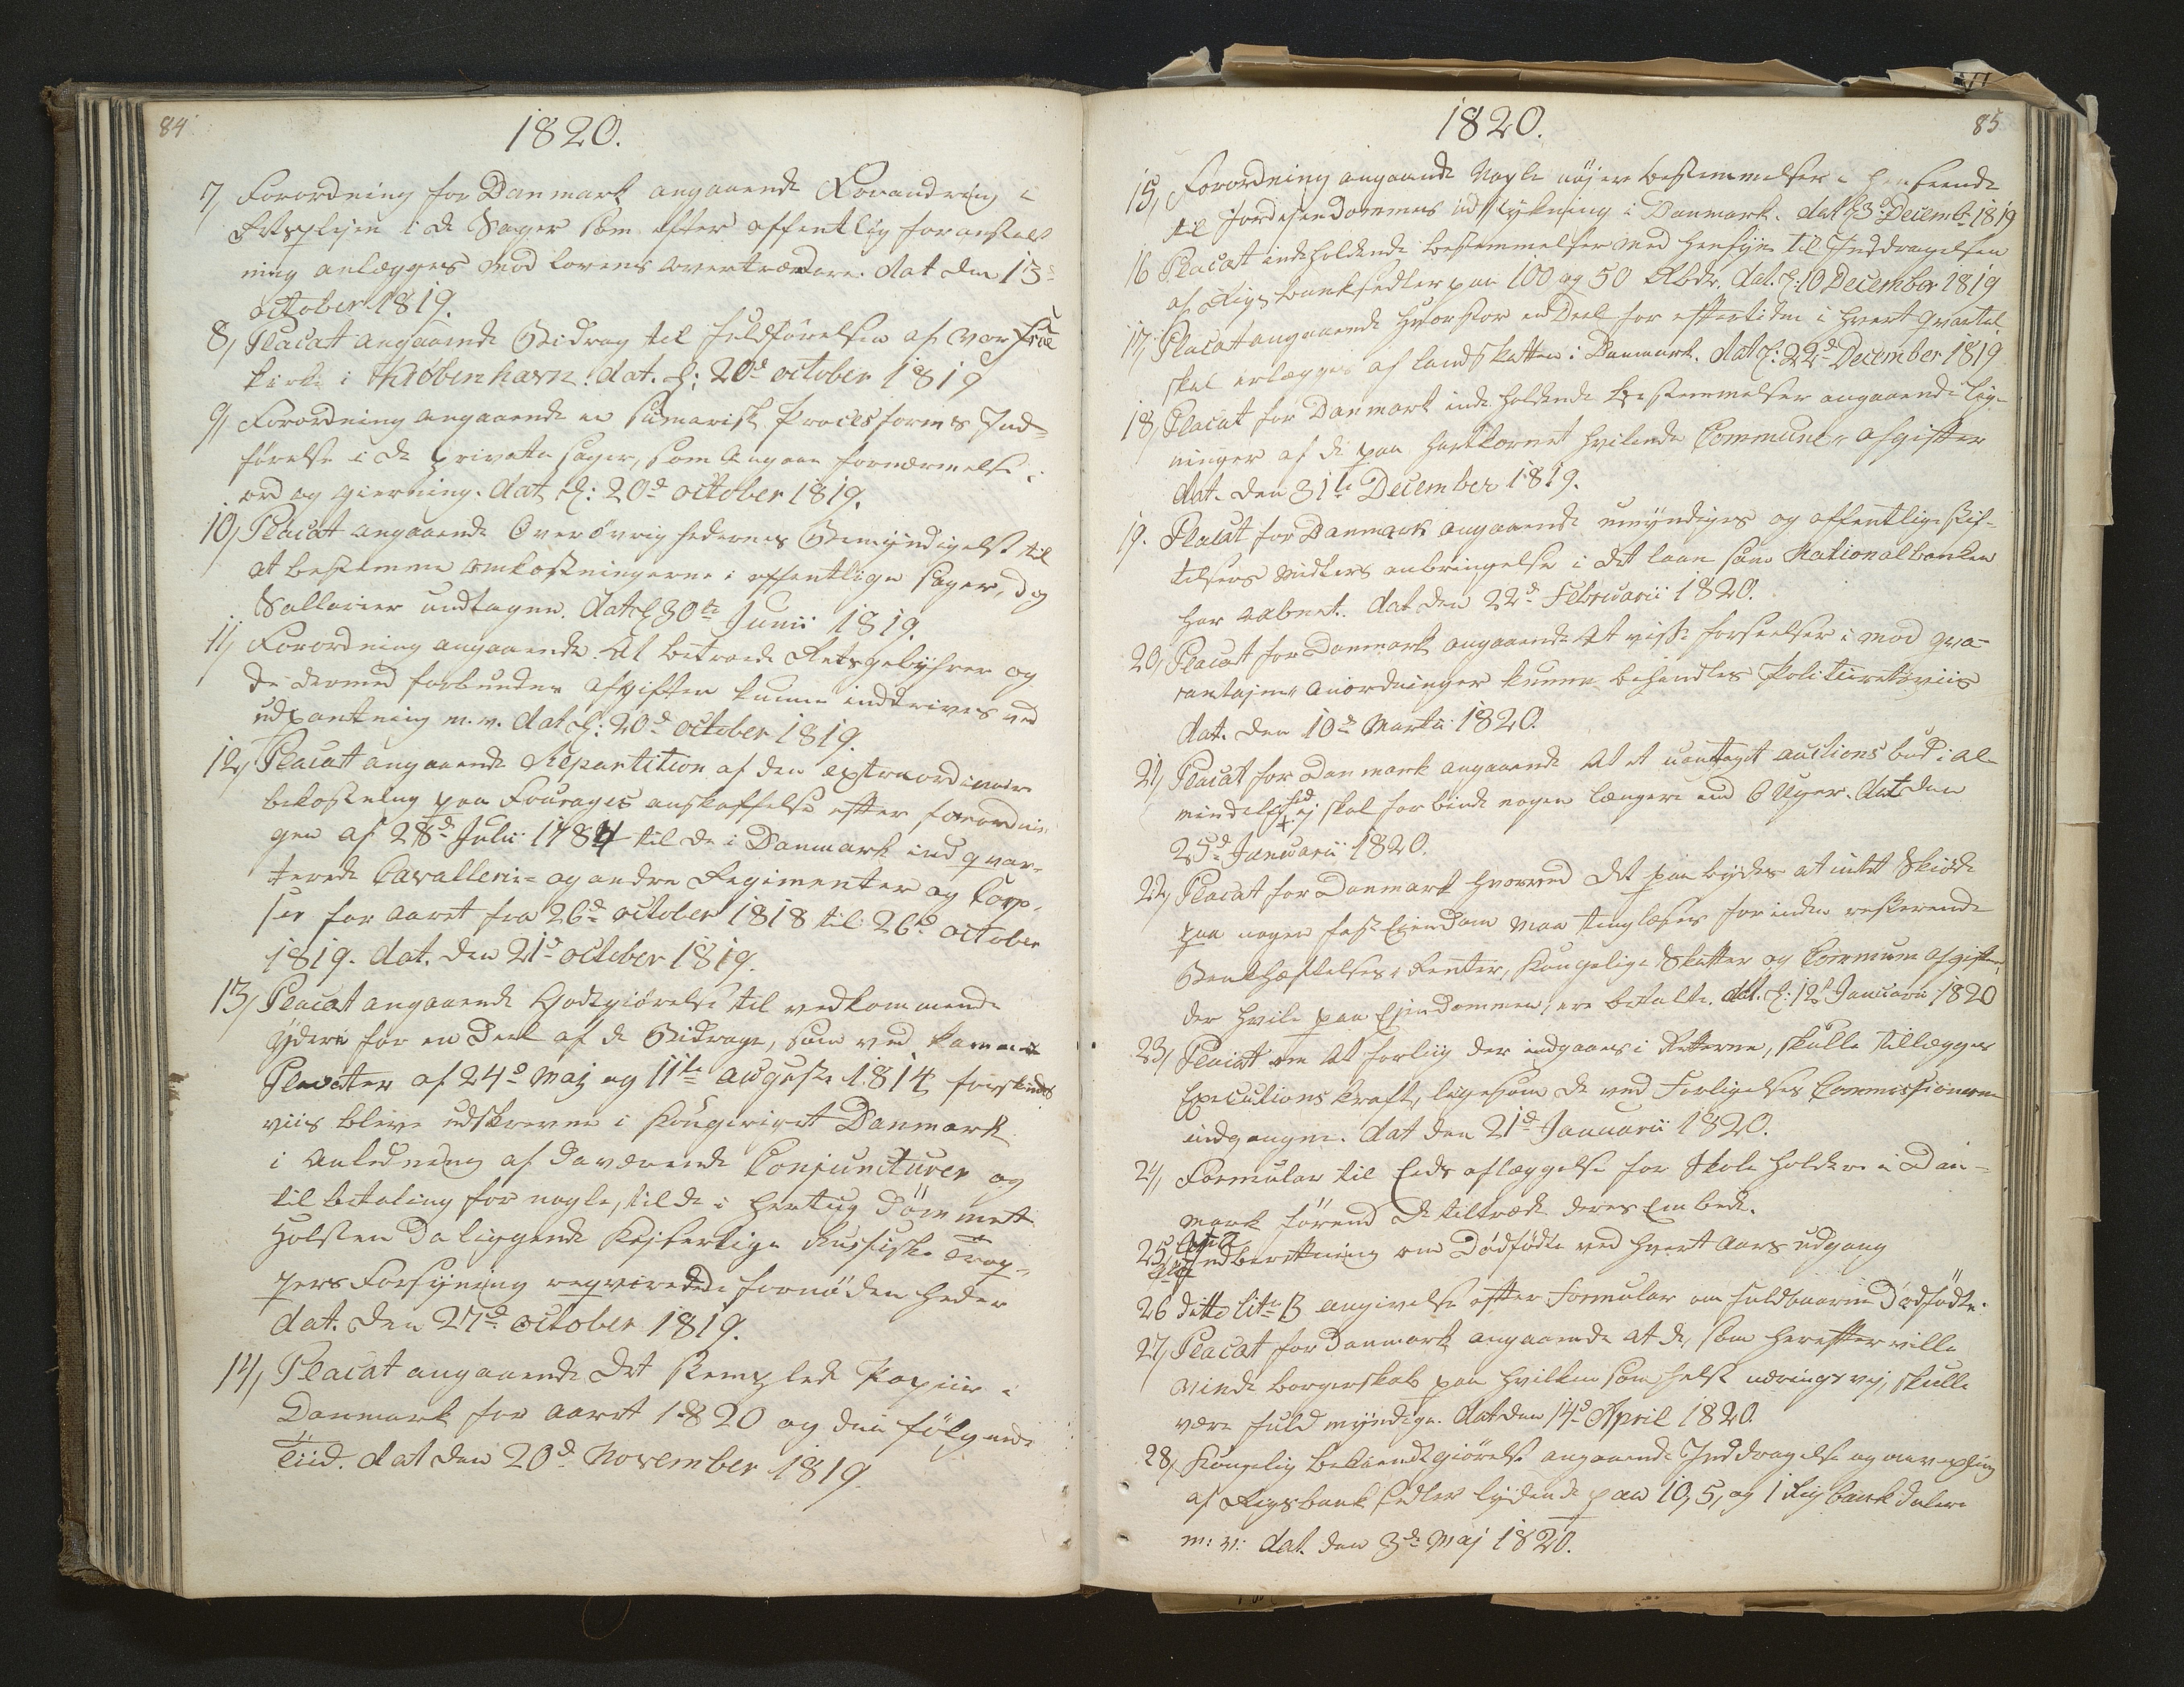 84
1820.
7, Forordning for Danmark angaaende Forandring i
Retsplejen i de Sager som efter offentlig foranstalt
ning anlægges mod lovens overtrædere. dat den 13d
october 1819.
8, Placat angaaende Bidrag til fuldførelsen af vor frue
kirke i Kiøbenhavn. dat. d: 20d october 1819
9, Forordning angaaende en sumarisk Procesforms Ind=
førelse i de private sager, som angaae fornærmelse i
ord og gierning. dat d: 20d october 1819.
10, Placat angaaende Overøvrighedernes Bemyndigelse til
at bestemme omkostningerne i offentlige sager, dog
Sallarier undtagen. dat d 30te Junii 1819.
11, Forordning angaaende At betroede Retsgebyhrer og
de dermed forbundne afgifter kunne inddrives ved
udpantning m. v. dat d: 20d october 1819.
12, Placat angaaende Repartition af den extraordinaire
bekostning paa Fourages anskaffelse efter forordnin
gen af 28d Julii 1784 til de i Danmark indqvar-
terede Cavallerie= og andre Regimenter og Corp-
ser for aaret fra 26d october 1818 til 26d october
1819. dat. den 21d october 1819.
13, Placat angaaende Godtgiørelse til vedkommende
Ydere for en Deel af de Bidrage, som ved kammer
Placater af 24d Maj og 11te auguste 1814 forskuds
viis bleve udskrevne i Kongeriget Danmark
i Anledning af daværende Conjuncturer og
til betaling for nogle, til de i Hertug dømmet
Holsten da liggende Kejserlige Russiske Trop-
pers Forsyning reqvirerede fornødenheder
dat. den 27d october 1819.
14, Placat angaaende det stemplede Papiir i
Danmark for aaret 1820 og den følgende
Tiid. dat den 20d November 1819
1820.
85
15, Forordning angaaende Nogle nøjere bestemmelser i henseende
til Jordejendommes udstykning i Danmark. dat d 3d Decemb. 1819
16 Placat indeholdende bestemmelser med hensyn til Inddragelsen
af Rigsbanksedler paa 100 og 50 Rbdr. dat. d: 10 December 1819
17, Placat angaaende hvor stor en Deel for eftertiden i hvert qvartal
skal erlægges af landskatten i Danmark. dat d: 22d December 1819
18, Placat for Danmark indeholdende bestemmelser angaaende lig-
ninger af de paa hartkornet hvilende Commune= afgifter
dat. den 31te December 1819.
19. Placat for Danmark angaaende umyndiges og offentlige stif-
telsers midlers anbringelse i det laan som Nationalbanken
har aabnet. dat den 22d Februarii 1820.
20, Placat for Danmark angaaende At visse forseelser i mod qva-
rantaine Anordninger kunne behandles Politieretsviis
dat. den 10d Martii 1820.
21, Placat for Danmark angaaende At et uantaget auctions bud i al-
mindelighed ej skal forbinde nogen længere end 6 Uger. dat den
25d Januarii 1820.
22, Placat for Danmark hvorved det paa bydes at intet Skiøde
paa nogen fast Eiendom maa tinglæses forinden resterende
Bankhæftelses Renter, Kongelige Skatter og Commune afgifter,
der hvile paa Ejendommen, ere betalte. dat. d: 12d Januarii 1820
23, Placat om At forliig der indgaaes i Retterne, skulle tillægges
Executions kraft, ligesom de ved Forligelses Commissionerne
indgangne. dat den 21d Januarii 1820.
24, Formular til Eeds aflæggelse for Skole holdere i Dan-
mark førend de tiltræde deres Embede.
25, Indberettning om Dødfødte ved hvert Aars udgang
26 ditto lit. B angivelse efter Formular om fuldbaarne Dødfødte.
27, Placat for Danmark angaaende at de, som herefter ville
vinde borgerskab paa hvilken som helst næringsvej, skulle
være fuldmyndige. dat den 14d April 1820.
28, Kongelig bekiendtgiørelse angaaende Inddragelse og omvexling
af Rigsbank sedler lydende paa 10, 5, og 1 Rigsbankdalere
m: v: dat den 3d Maj 1820.